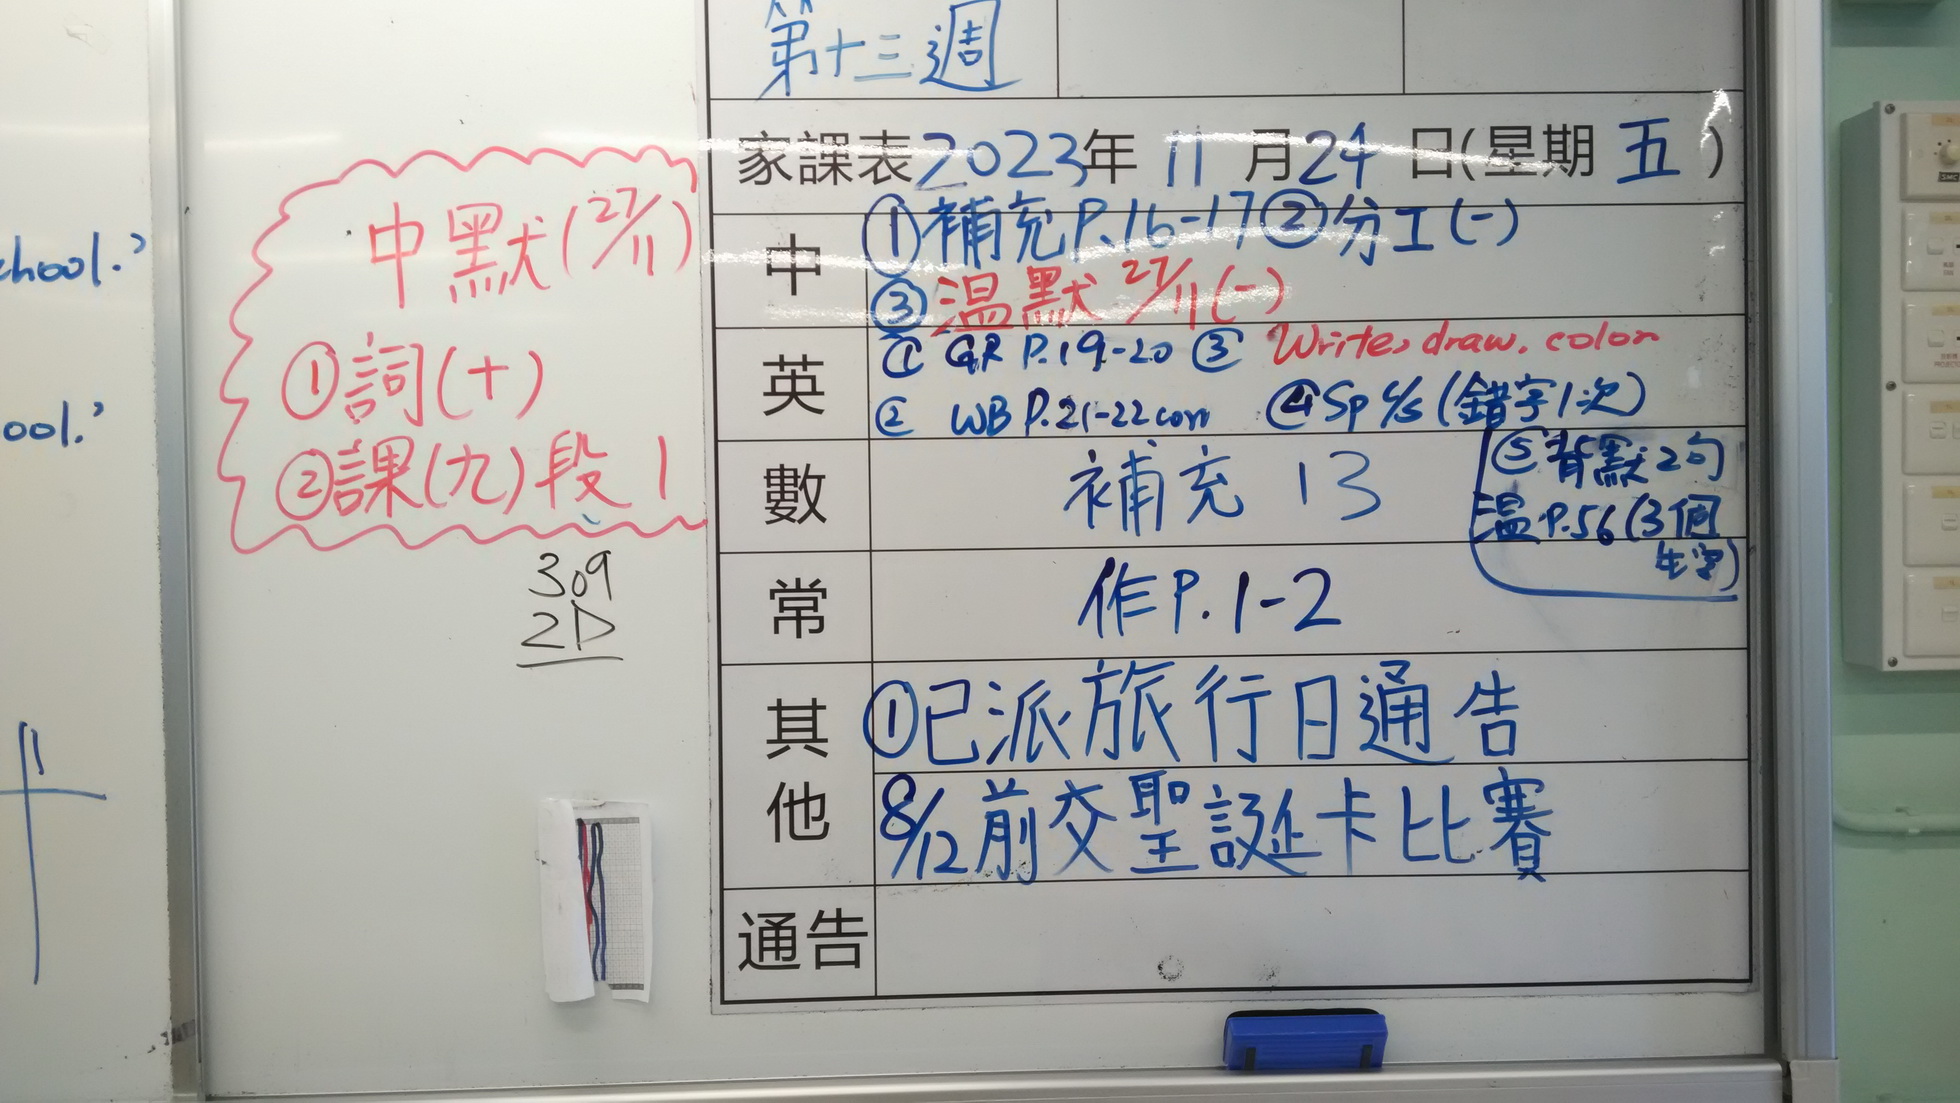 chool.’
ool.’
中默(27/11)
①詞(十)
②課(九)段1
309
2D
第十三週
家課表2023年11月24日(星期五)
中
①補充P.16-17②分工(一)
③温默27/11(一)
英
① GR P.19-20 ③ Write, draw, color
② WB P.21-22 corr ④Sp c/s (錯字1次)
⑤背默2句
温P.56(3個
生字)
數
補充 13
常
作P.1-2
其他
①已派旅行日通告
8/12前交聖誕卡比賽
通告